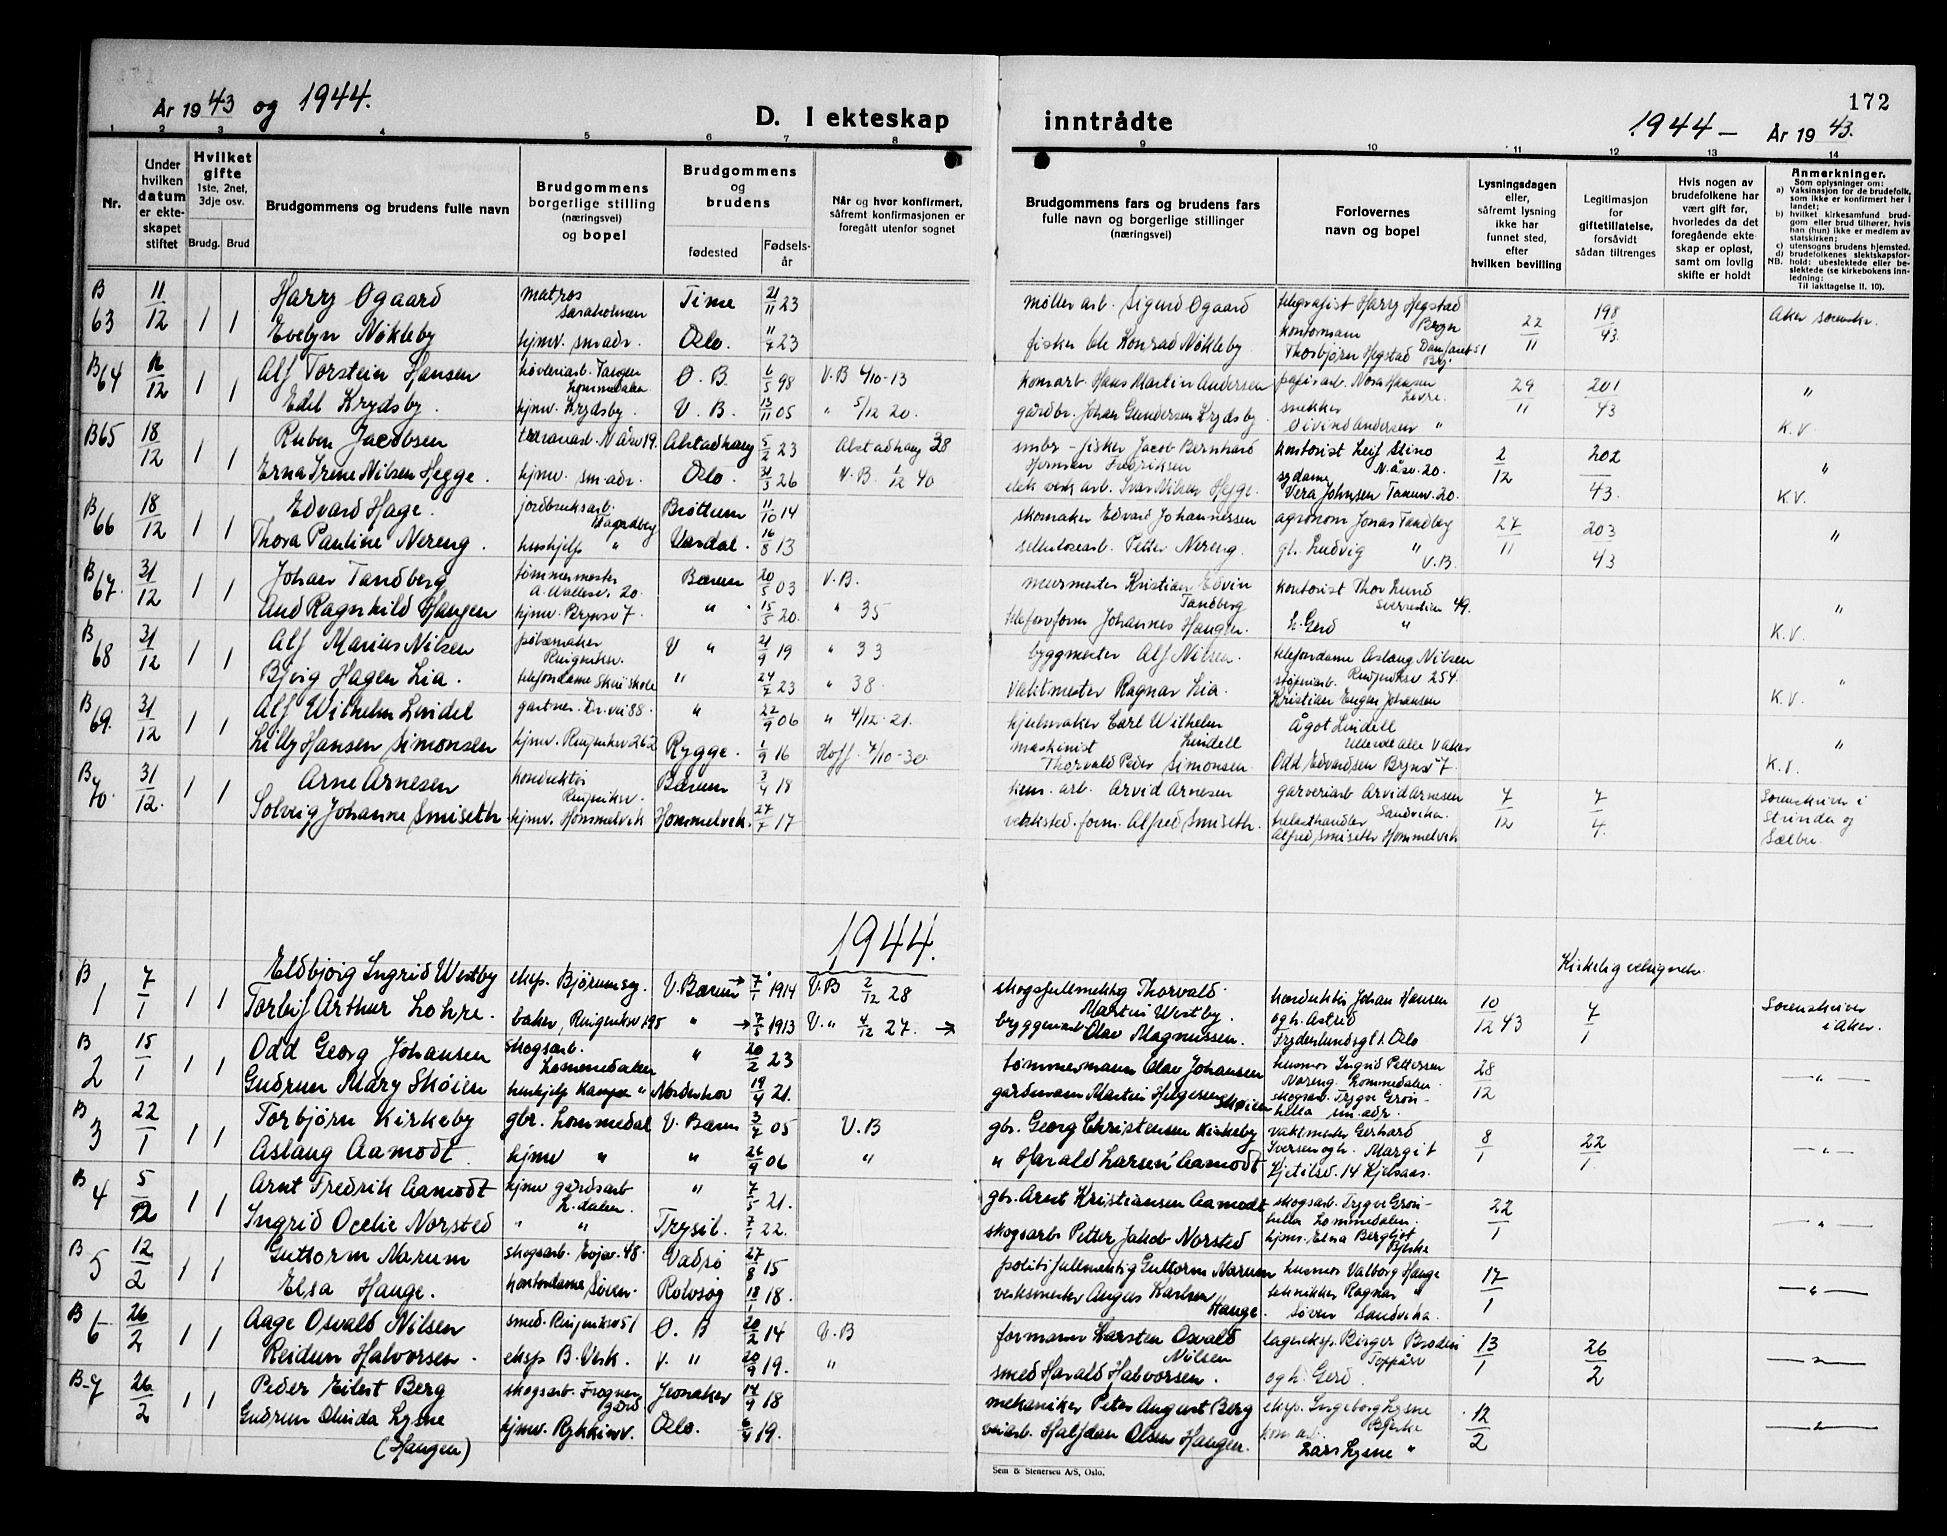 172
År 1943 og 1944.
D. I ekteskap
inntrådte
1944 — År 1943.
1 2 3 4 5 6 7 8 9 10 11 12 13 14
Nr.
Under hvilken datum er ekteskapet stiftet
Hvilket gifte 1ste, 2net, 3dje osv.
Brudg. Brud
Brudgommens og brudens fulle navn
Brudgommens borgerlige stilling (næringsvei) og bopel
Brudgommens og brudens
fødested
Fødsels-år
Når og hvor konfirmert, såfremt konfirmasjonen er foregått utenfor sognet
Brudgommens fars og brudens fars fulle navn og borgerlige stillinger (næringsvei)
Forlovernes navn og bopel
Lysningsdagen eller, såfremt lysning ikke har funnet sted, efter hvilken bevilling
Legitimasjon for giftetillatelse, forsåvidt sådan tiltrenges
Hvis nogen av brudefolkene har vært gift før, hvorledes da det foregående ekteskap er opløst, samt om lovlig skifte er holdt
Anmerkninger.
Som oplysninger om:
a) Vaksinasjon for de brudefolk, som ikke er konfirmert her i landet;
b) hvilket kirkesamfund brudgom eller brud tilhører, hvis han (hun) ikke er medlem av statskirken;
c) utensogns brudens hjemsted.
d) brudefolkenes slektskapsforhold: ubeslektede eller beslektede (se kirkebokens innledning;
NB. Til iakttagelse II. 10).
B 63 11/12 1 1 Harry Øgaard matros Saraholmen Time 21/11 23 møller arb. Sigurd Øgaard telegrafist Harry Hegstad Bryn 22/11 198/43 Aker sorenskr.
Evelyn Nökleby hjmv. sm adr. Oslo. 11/7 23 fisker Ole Konrad Nökleby kontormann Thorbjørn Hegstad
B 64 12/12 1 1 Alf Torstein Hansen Lommedalen Ø. B. 6/5 98 V.B 4/10-13 Hans Martin Andersen Nora Hansen 29/11 201/43 "
Edel Krydsby. hjmv. Krydsby. V. B. 13/11 05 " 5/12 20. gårdbr. Johan Gundersen Krydsby snekker Øivind Andersen " K.V.
B65 18/12 1 1 Ruben Jacobsen Alstadhaug 5/2 23 Alstadhaug 38 fisker Jacob Bernhard kontorist Leif Stino 2/12 202/43. "
Erna Irene Nilsen Hegge. hjmv. sm adr. Oslo. 31/3 26 V.B. 1/12 40 Ivar Nilsen Hegge. sydame Vera Johnsen Tanum 20. K.V.
B 66 18/12 1 1 Edvard Hage. jordbruksarb. Brøttum 11/10 14 skomaker Edvard Johannessen agronom Jonas Tandberg 27/11 203/43 "
Thora Pauline Nereng. hushjelp " Vardal. 16/8 13 Petter Nereng. gb. Ludvig " V.B.
B 67. 31/12 1 1 Johan Tandberg tømmermester Bærum 20/5 03 V.B. murmester Kristian Edvin Tandberg kontorist Thor Lund "
Aud Ragnhild Haugen hjmv. Brynsv 7. " 15/5 20. " 35 Johannes Haugen. h. Gerd " K.V.
B 68 31/12 1 1 Alf Marius Nilsen pølsemaker Ringeriksv. V " 21/9 19 " 33 byggmester Alf Nilsen. telefondame Aslaug Nilsen "
Bjørg Hagen Lia. telefondame Skui skole " 24/7 23 " 38. vaktmester Ragnar Lia. Ringeriksv 254. K.V.
B 69. 31/12 1 1 Alf Wilhelm Lindel gartner. Dr. vei 88. " 22/9 06 " 4/12-21. hjulmaker Carl Wilhelm Lindell Ågot Lindell "
Lilly Hansen Simonsen hjmv. Ringeriksv 262 Rygge. 1/9 16 Hoff. 7/10-30. maskinist Thorvald Peder Simonsen. Odd Edvardsen Brynsv 7. K.V.
B 70. 31/12. 1 1 Arne Arnesen konduktør Ringeriksv. Bærum 3/4 18 arb. Arvid Arnesen garveriarb Arvid Arnesen Sandvika. 7/12 7/4. Sorenskriver i Strinda og Selbu.
Solveig Johanne Smiseth. hjmv. Hommelvik Hommelvik. 27/7 17 verksted. form. Alfred Smiseth. trelasthandler Alfred Smiseth Hommelvik
1944.
Kirkelig velsignelse
B 1 7/1 1 1 Eldbjørg Ingrid Westby eksp. Bjørumsg. V. Bærum → 7/1 1914 V.B 2/12 28 skogsfullmektig Thorvald Martin Westby. konduktør Johan Hansen og h. Astrid 10/12 43 7/1 Sorenskriver i Aker.
Torleif Arthur Lohre. baker, Ringeriksv 195 " → 7/5 1913 V. " 4/12 27. → byggmest Olav Magnussen. Oslo
B 2 15/1 1 1 Odd Georg Johansen skogsarb. Lommedalen " 20/2 23 tømmermann Olav Johansen husmor Ingrid Pettersen Nareng. Lommedalen. 28/12 — " —
Gudrun Mary Skøien hushjelp " Norderhov 19/4 21. gårdmann Martin Helgesen Skøien skogsarb. Trygve Grønhella sm. adr.
B 3 22/1 1 1 Torbjørn Kirkeby gbr. Lommedal V. Bærum 3/7 05 V.B gbr. Georg Christensen Kirkeby vaktmester Gerhard Iversen og h. Margit 8/1 22/1 — " —
Aslaug Aamodt hjmv " " 26/9 06 " " Harald Larsen Aamodt Kjetilsv. 14 Kjelsaas.
B 4 5/12 1 1 Arnt Fredrik Aamodt hjmv gårdsarb L.dalen. " 7/5 21. gbr. Arnt Kristiansen Aamodt skogsarb. Trygve Grønhella Lommedalen. 22/1 — " —
Ingrid Ocelie Norsted " " Trysil. 7/1 22. skogsarb Petter Jakob Norsted hjmv. Elna Bergljot Bjerke
B 5 12/2 1 1 Guttorm Narum skogsarb. 48. Vadsø 27/8 15 politifullmektig Guttorm Narum husmor Valborg Hauge 17/1 — " —
Elsa Hauge. kontordame Løken. Rolvsøy 18/1 18. verksmester August Karlsen Hauge. tekniker Ragnar " Sandvika.
B 6 26/2 1 1 Aage Osvald Nilsen smed. Ringeriksv 51 Ø. B 20/2 14 V.B formann Karsten Osvald Nilsen lagereksp. Birger Brodin 13/1 26/2 — " —
Reidun Halvorsen. eksp B. Verk. V. " 20/9 19. " smed Harald Halvorsen. og h. Gerd.
B-7 26/2 1 1 Peder Eilert Berg skogsarb. Frogner Jevnaker 14/9 18 mekaniker Peter August Berg eksp. Ingeborg Lysne Bjerke 12/2 — " —
Gudrun Olinda Lysne (Haugen) hjmv. Rykkinnv. Oslo. 6/4 19. veiarb. Halfdan Olsen Haugen. Lars Lysne "
Sem & Stenersen A/S, Oslo.